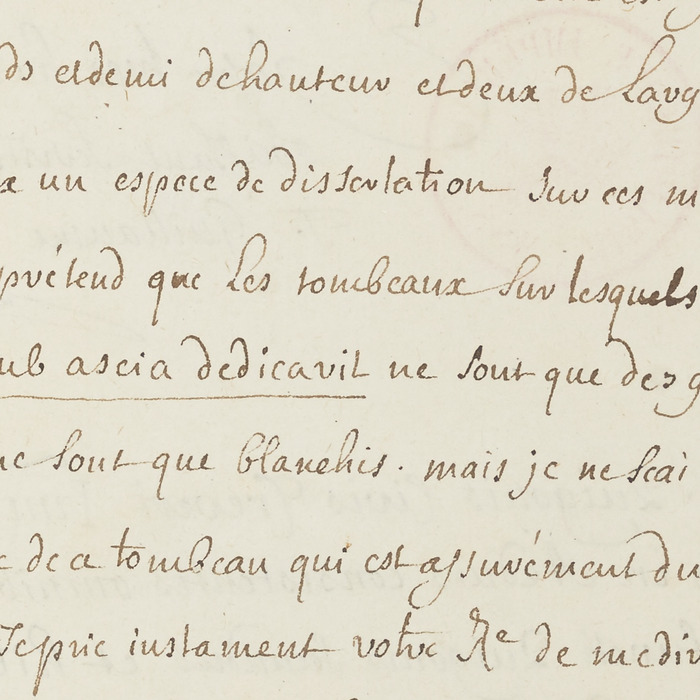 ds et demi de hauteur et deux de larg
x un espece de dissertation sur ces m
prétend que les tombeaux sur lesquels
ub ascia dedicavit ne sont que des g
ne sont que blanchis. mais je ne scai
e de ce tombeau qui est assurément du
Je prie instament votre Rce de me dir